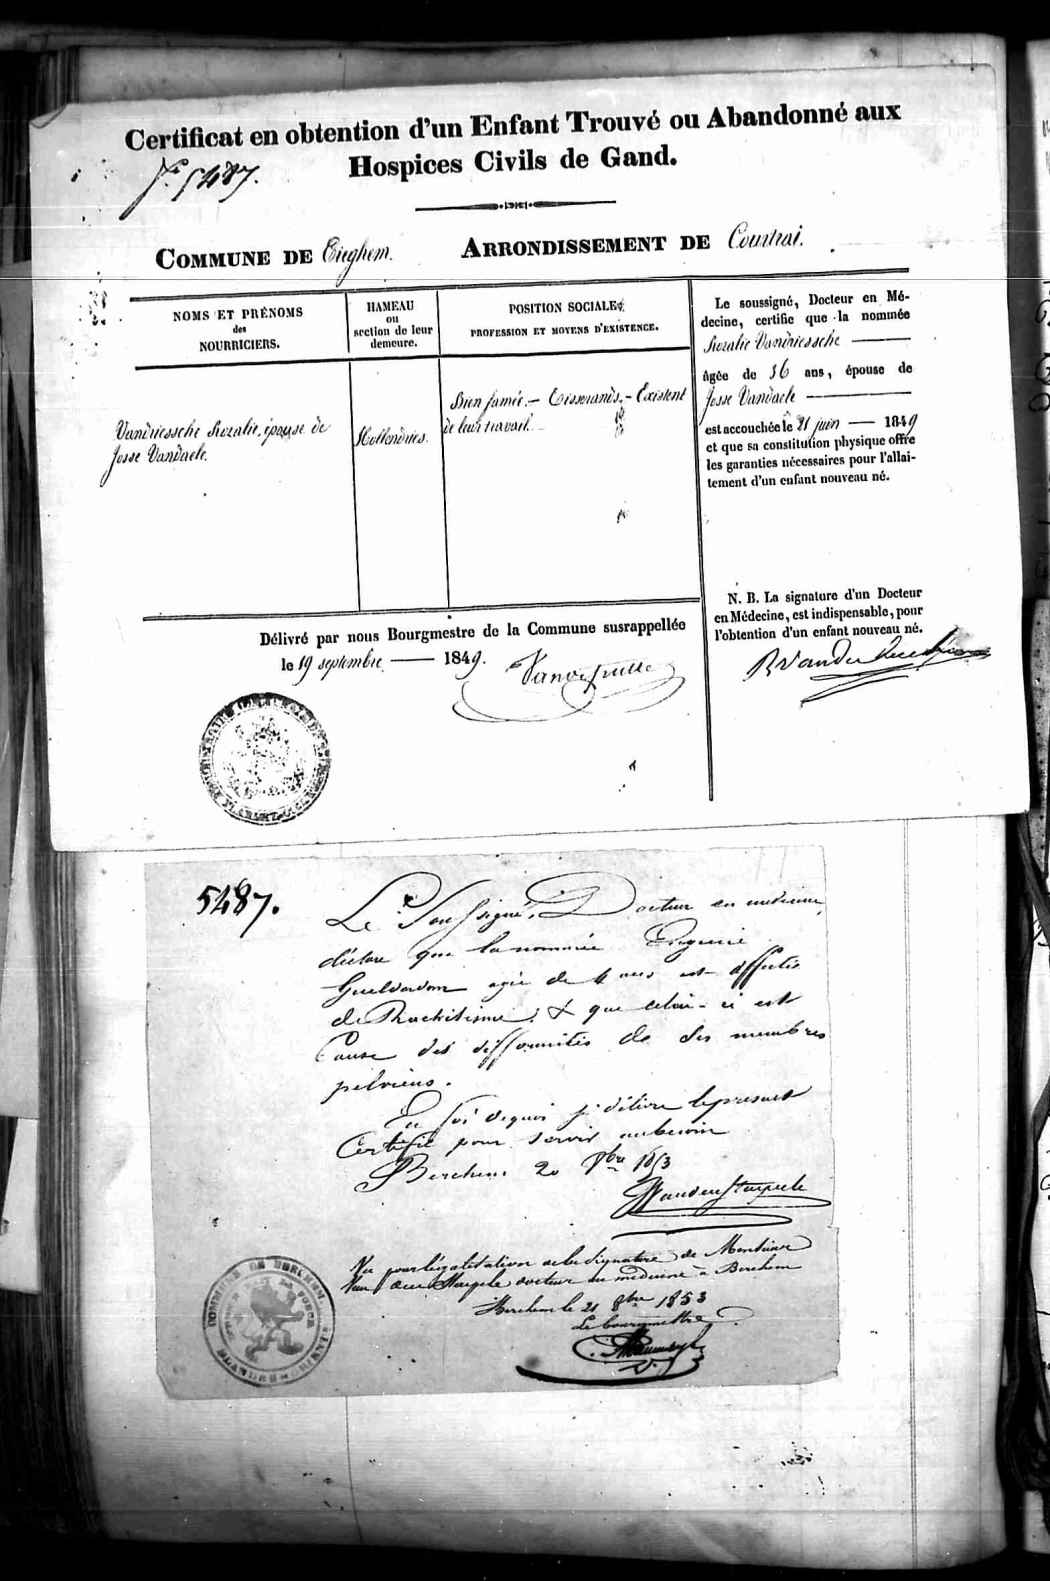 Certificat en obtention d'un Enfant Trouvé ou Abandonné aux
Hospices Civils de Gand.
N.° 5487.
COMMUNE DE Tieghem. ARRONDISSEMENT DE Courtrai.
NOMS ET PRÉNOMS
des
NOURRICIERS.
HAMEAU
ou
section de leur
demeure.
POSITION SOCIALE,
PROFESSION ET MOYENS D'EXISTENCE.
Vandriessche Rozalie, épouse de
Josse Vandaele.
Hollendries.
Bien famée. – Tisserands. – Existent
de leur travail.
Le soussigné, Docteur en Mé-
decine, certifie que la nommée
Rozalie Vandriessche
âgée de 36 ans, épouse de
Josse Vandaele
est accouchée le 21 juin 1849
et que sa constitution physique offre
les garanties nécessaires pour l'allai-
tement d'un enfant nouveau né.
N. B. La signature d'un Docteur
en Médecine, est indispensable, pour
l'obtention d'un enfant nouveau né.
Délivré par nous Bourgmestre de la Commune susrappellée
le 19 septembre 1849.
5487.
Le Soussigné, Docteur en médecine,
déclare que la nommée Eugenie
agée de 4 ans est affectée
de Rachitisme, & que celui-ci est
Cause des difformités de ses membres
pelviens.
En foi de quoi j'ai délivré le present
Certificat pour servir au besoin
Berchem 20 8bre 1853
Vu pour légalisation de la signature de Monsieur
docteur en médecine à Berchem
Berchem le 21 8bre 1853
Le bourgmestre
COMMUNE DE BERCHEM
FLANDRE ORIENT.